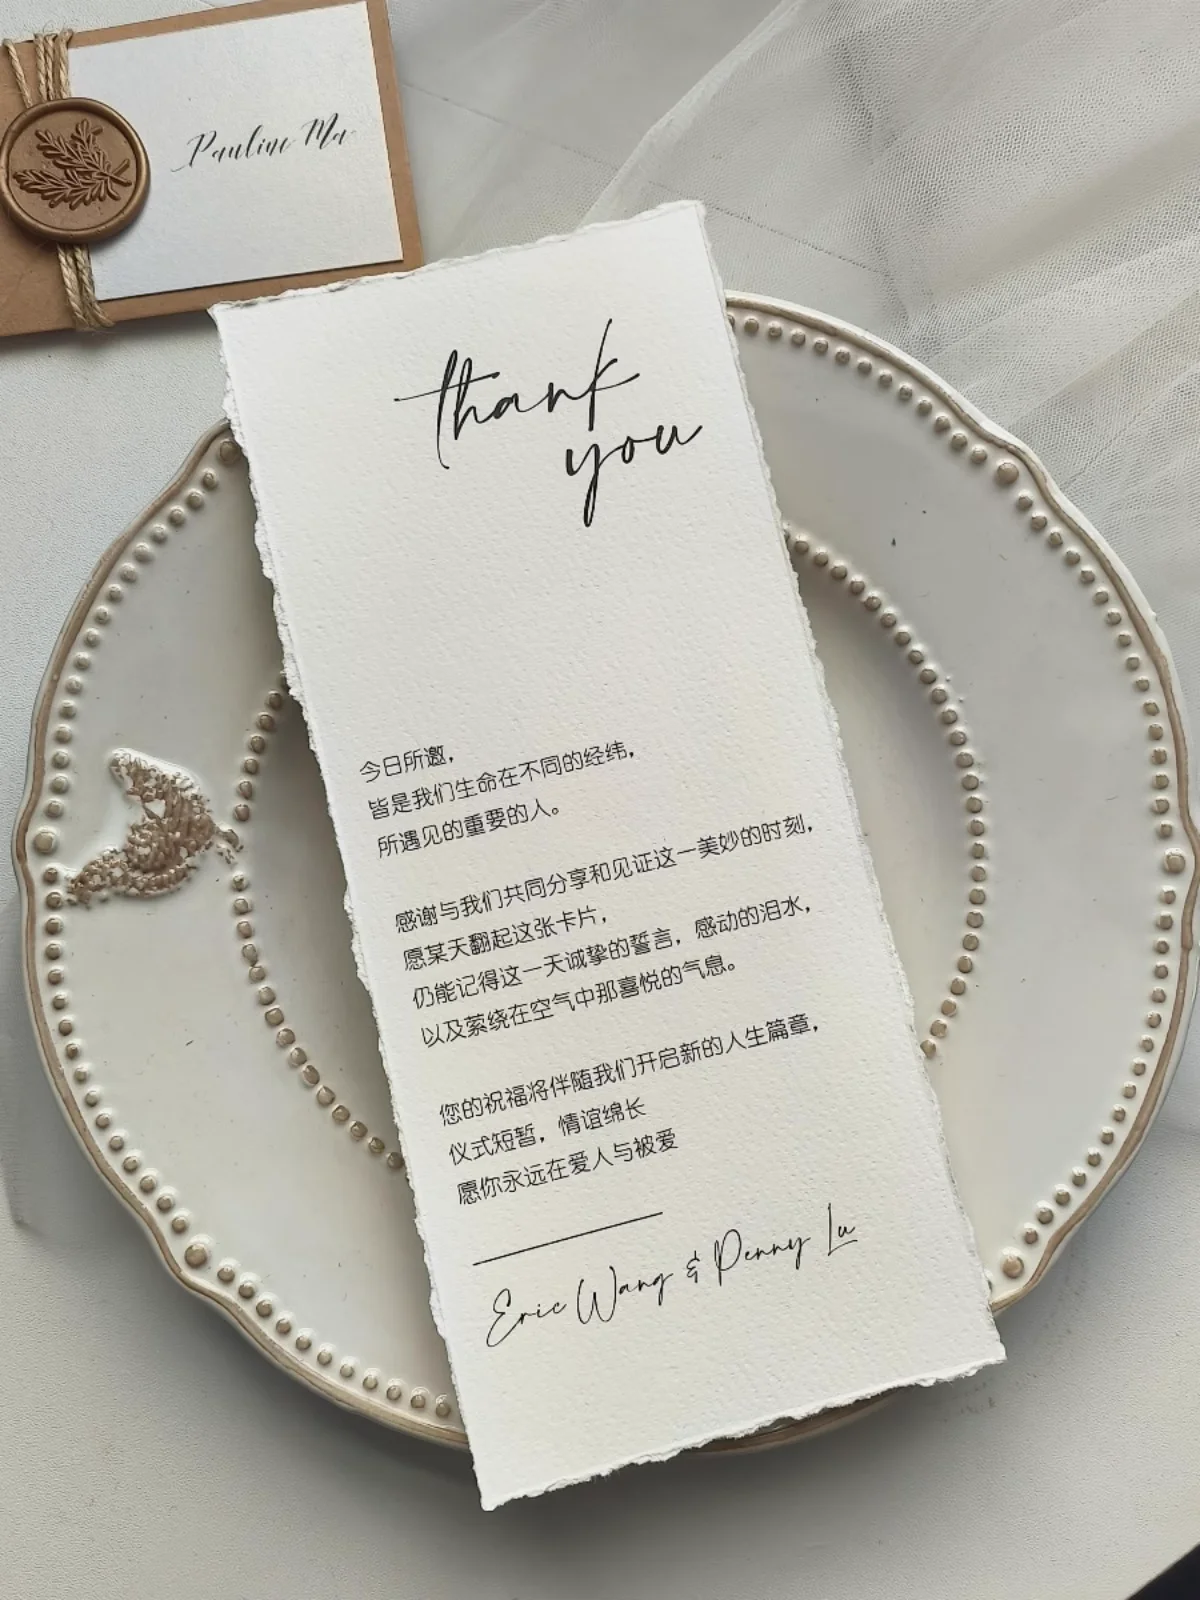 Pauline Ma
thank
you
今日所邀，
皆是我们生命在不同的经纬，
所遇见的重要的人。
感谢与我们共同分享和见证这一美妙的时刻，
愿某天翻起这张卡片，
仍能记得这一天诚挚的誓言，感动的泪水，
以及萦绕在空气中那喜悦的气息。
您的祝福将伴随我们开启新的人生篇章，
仪式短暂，情谊绵长
愿你永远在爱人与被爱
Eric Wang & Penny Lu